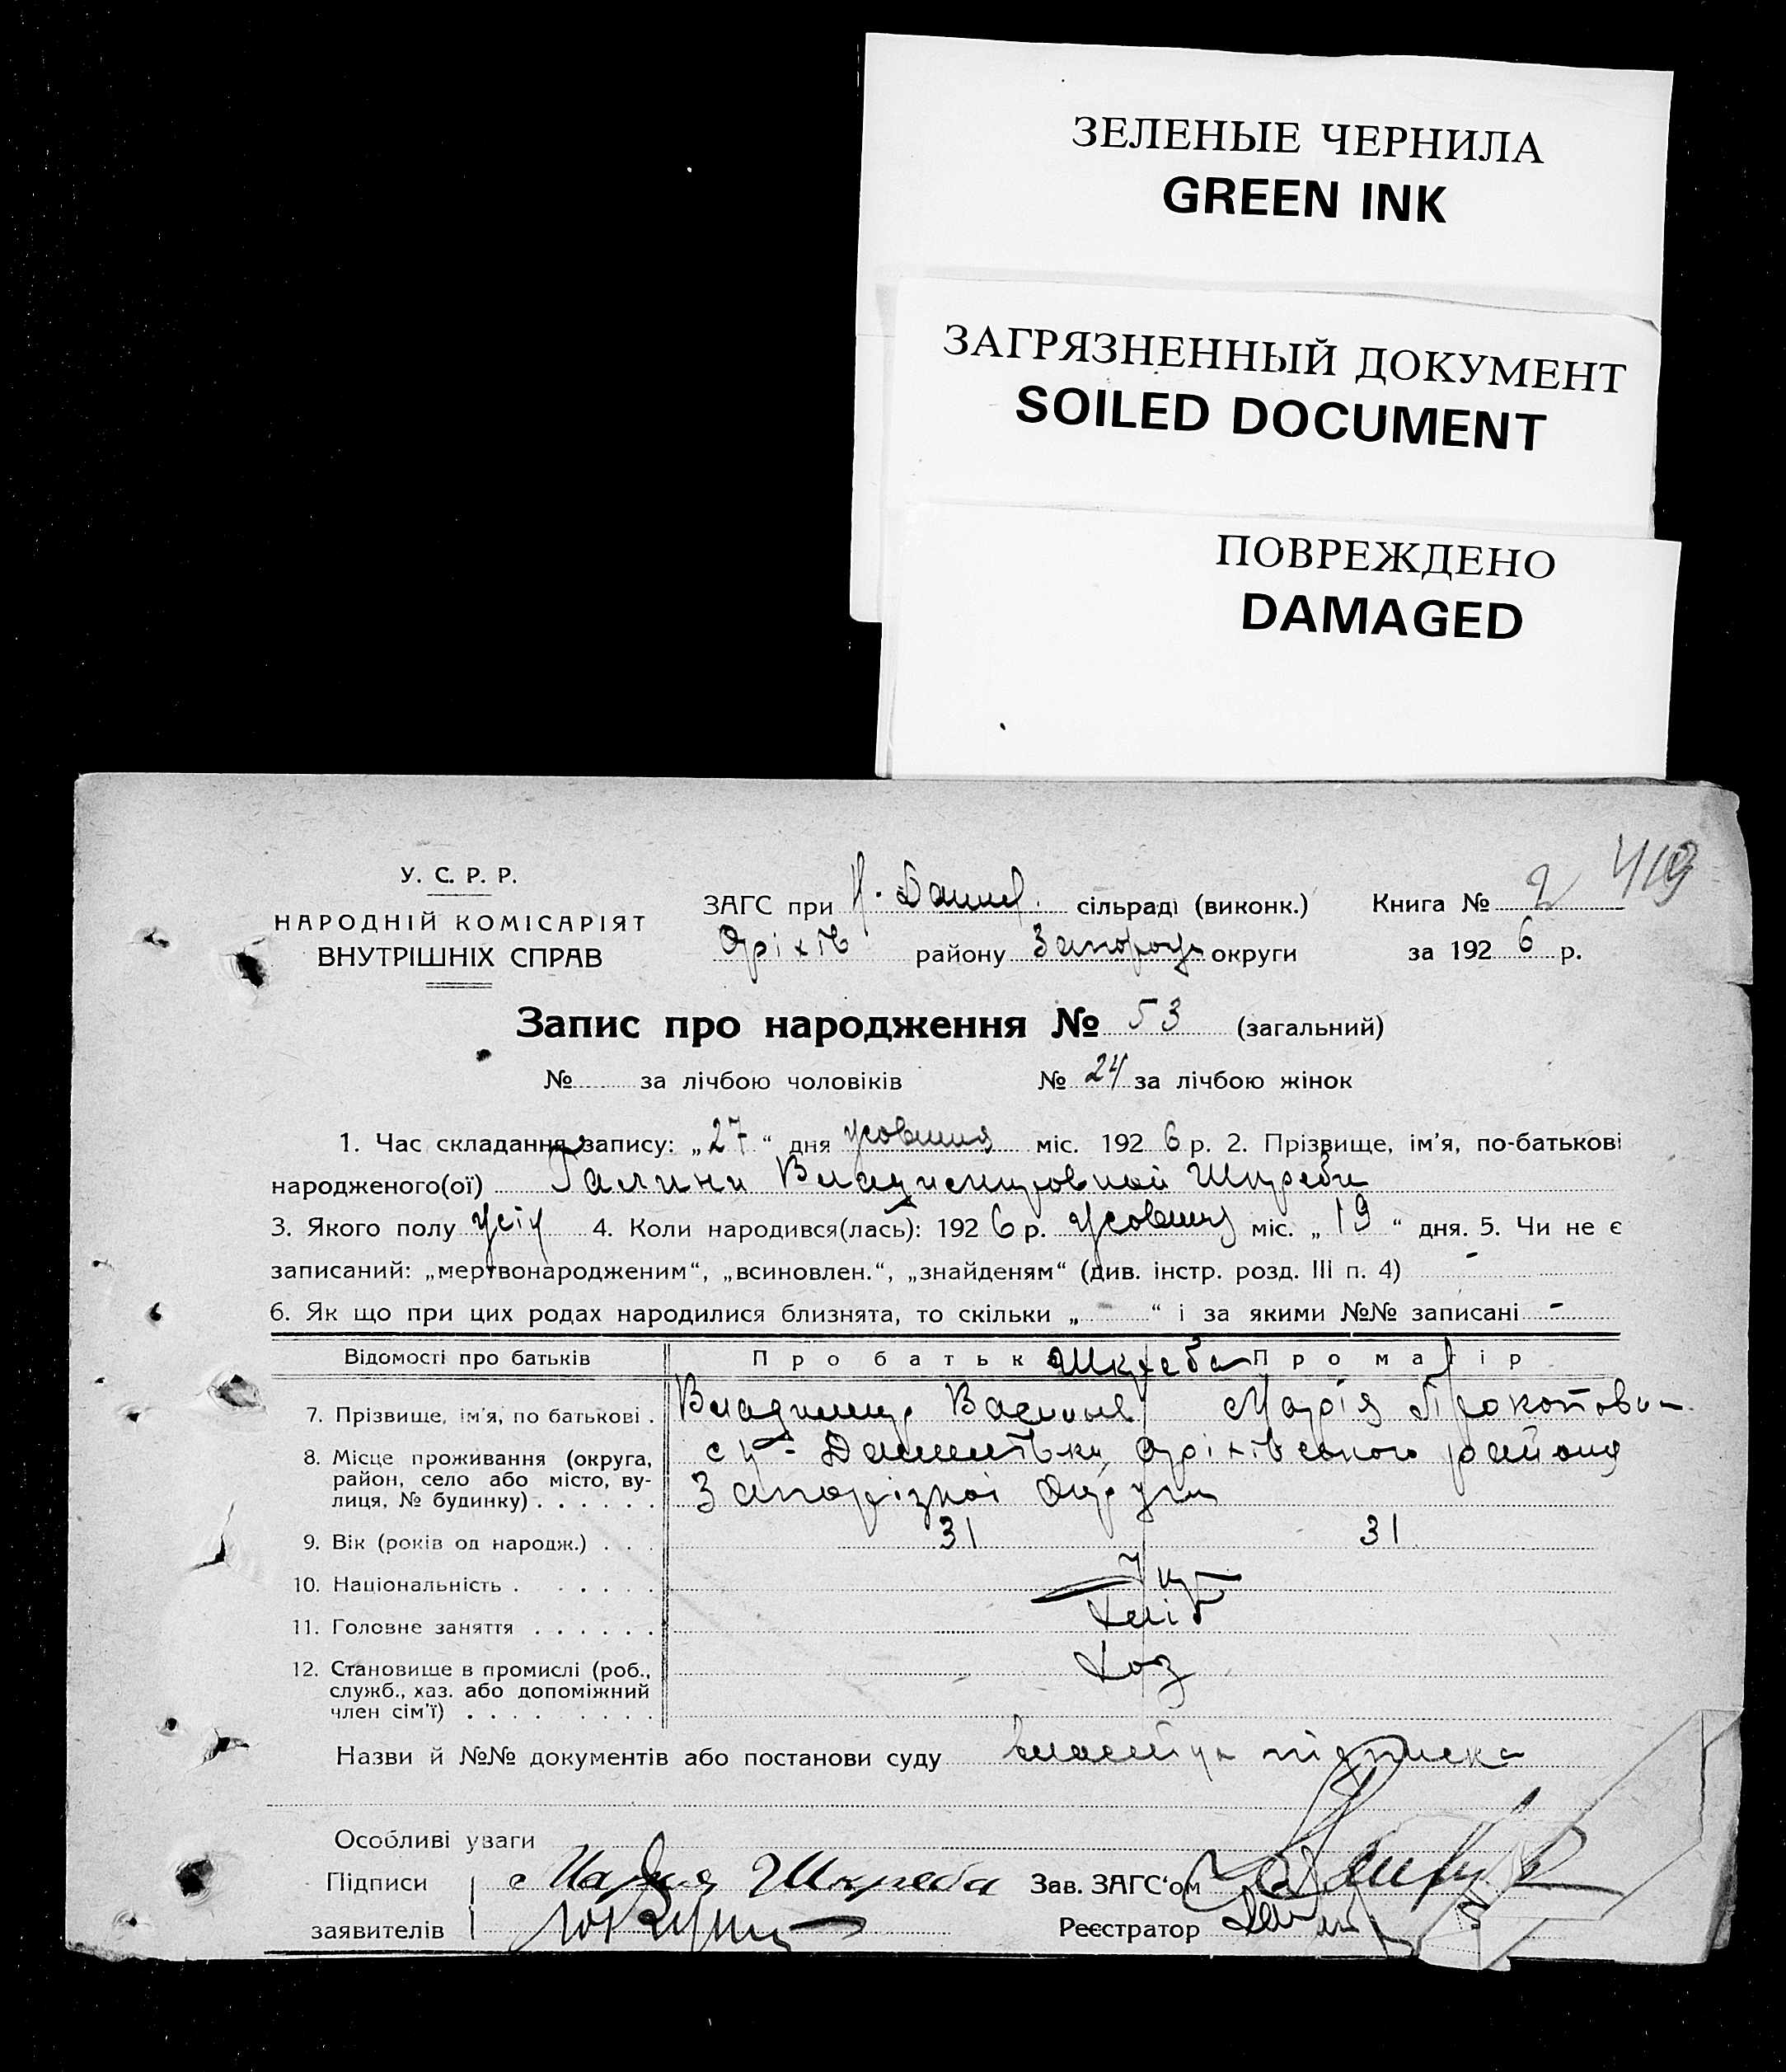 ЗЕЛЕНЫЕ ЧЕРНИЛА
GREEN INK
ЗАГРЯЗНЕННЫЙ ДОКУМЕНТ
SOILED DOCUMENT
ПОВРЕЖДЕНО
DAMAGED
419
У. С. Р. Р.
НАРОДНІЙ КОМІСАРІЯТ
ВНУТРІШНІХ СПРАВ
ЗАГС при сільраді (виконк.) Книга № 2
Оріхів району Запорозь округи за 1926 р.
Запис про народження № 53 (загальний)
№ за лічбою чоловіків № 24 за лічбою жінок
1. Час складання запису: „27“ дня жовтня міс. 1926 р. 2. Прізвище, ім'я, по-батькові
народженого(ої) Галини Владимировной Шкреби
3. Якого полу жін 4. Коли народився(лась): 1926 р. жовтня міс. „19“ дня. 5. Чи не є
записаний: „мертвонародженим“, „всиновлен.“, „знайденям“ (див. інстр. розд. III п. 4) -
6. Як що при цих родах народилися близнята, то скільки „-“ і за якими №№ записані -
Відомості про батьків Про батька Шкреба Про матір
7. Прізвище, ім'я, по батькові . Владимир Василів Марія Прокоповна
8. Місце проживання (округа, район, село або місто, вулиця, № будинку) . . . . . . Оріхівського району
Запорізкої Округи
9. Вік (років од народж.) . . . 31 31
10. Національність . . . . . . Укр
11. Головне заняття . . . . . . Хліб
12. Становище в промислі (роб., служб., хаз. або допоміжний член сім'ї) . . . . . . . . . Хоз
Назви й №№ документів або постанови суду підписка
Особливі уваги
Підписи Мария Шкреба Зав. ЗАГС'ом
заявителів Реєстратор